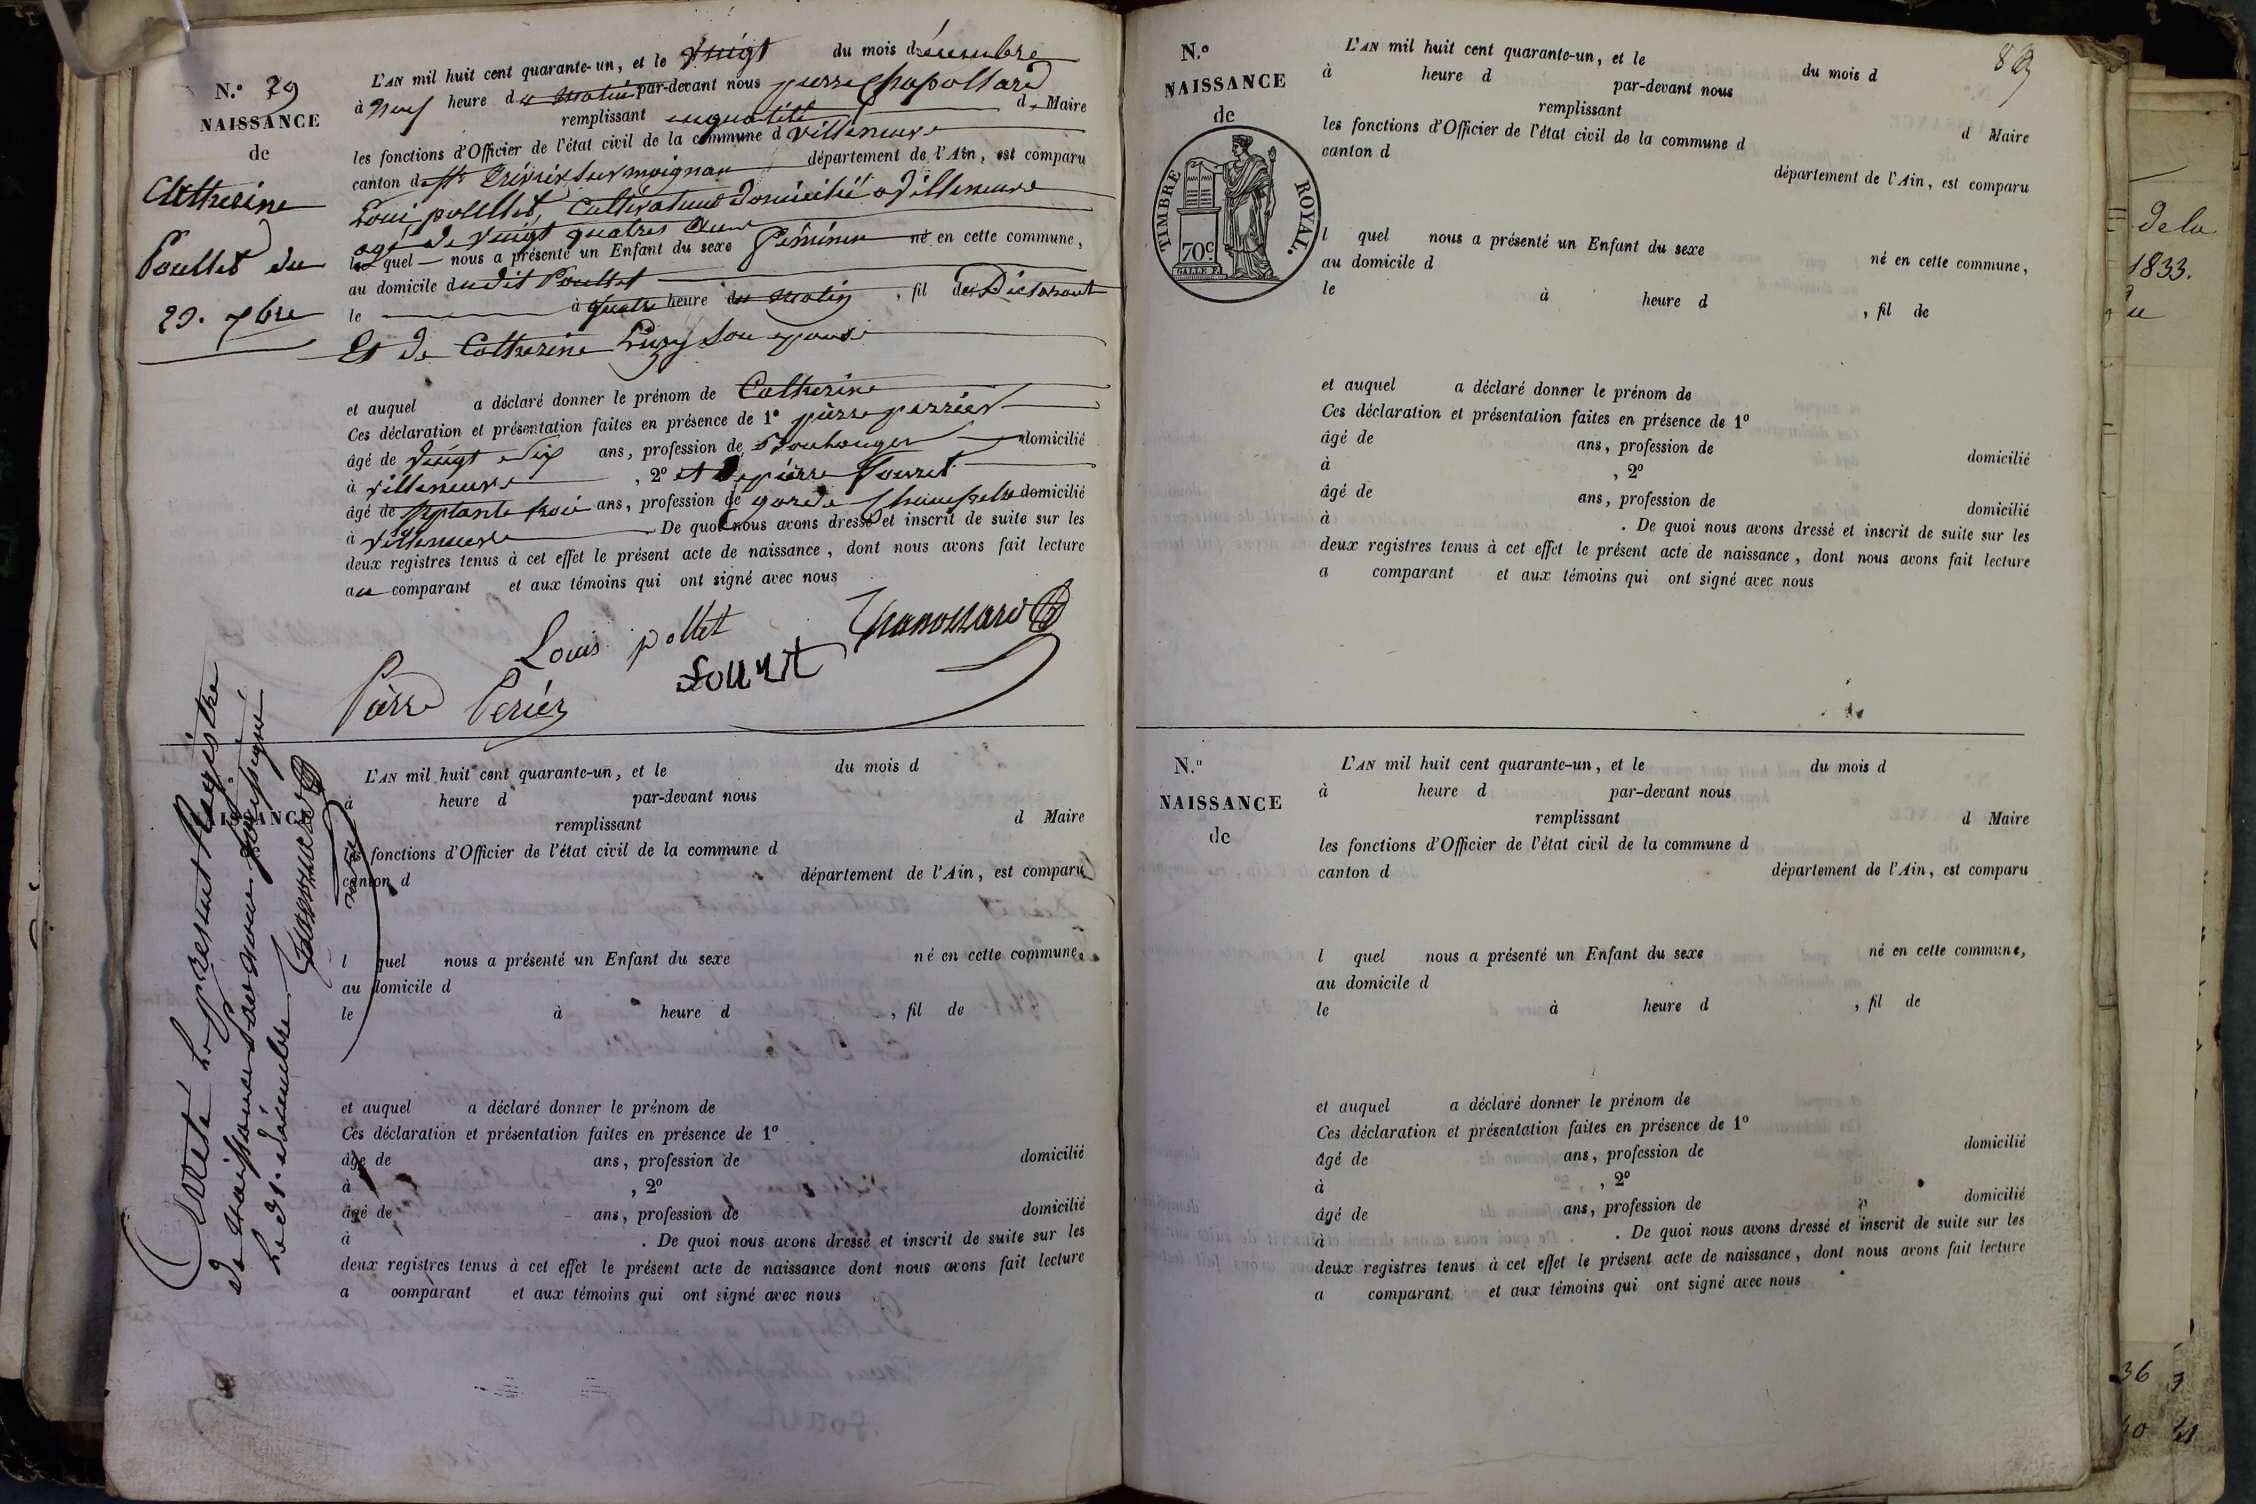 N.o 29
NAISSANCE
de
Catherine
Poullet du
20. xbre
L'AN mil huit cent quarante-un, et le vingt du mois décembre
à Neuf heure du matin par-devant nous pierre Chapollard
remplissant en qualité d Maire
les fonctions d'Officier de l'état civil de la commune d villeneuve
canton de St Trivier sur moignan département de l'Ain, est comparu
Loui poulllet, Cultivateur domicilié a villeneuve
agé de vingt quatres ans
le quel nous a présenté un Enfant du sexe féminin né en cette commune,
au domicile dudit Poullet
le à quatre heure du matin, fil du Déclarant
Et de Catherine son epouse
et auquel a déclaré donner le prénom de Catherine
Ces déclaration et présentation faites en présence de 1o pierre perrier
âgé de vingt dix ans, profession de Boulanger domicilié
à villeneuve, 2o et de pierre
âgé de septante troi ans, profession de garde Champetre domicilié
à villeneuve De quoi nous avons dressé et inscrit de suite sur les
deux registres tenus à cet effet le présent acte de naissance, dont nous avons fait lecture
au comparant et aux témoins qui ont signé avec nous
Louis pollet
Pierre Periér
NAISSANCE
Arreté le present Registre
de Naissance par nous soussigné
le 31. décembre
L'AN mil huit cent quarante-un, et le du mois d
à heure d par-devant nous
remplissant d Maire
les fonctions d'Officier de l'état civil de la commune d
canton d département de l'Ain, est comparu
l quel nous a présenté un Enfant du sexe né en cette commune,
au domicile d
le à heure d , fil de
et auquel a déclaré donner le prénom de
Ces déclaration et présentation faites en présence de 1o
âgé de ans, profession de domicilié
à , 2o
âgé de ans, profession de domicilié
à . De quoi nous avons dressé et inscrit de suite sur les
deux registres tenus à cet effet le présent acte de naissance dont nous avons fait lecture
a comparant et aux témoins qui ont signé avec nous
N.o
NAISSANCE
de
TIMBRE ROYAL.
70c
L'AN mil huit cent quarante-un, et le du mois d
à heure d par-devant nous
remplissant d Maire
les fonctions d'Officier de l'état civil de la commune d
canton d département de l'Ain, est comparu
l quel nous a présenté un Enfant du sexe né en cette commune,
au domicile d
le à heure d , fil de
et auquel a déclaré donner le prénom de
Ces déclaration et présentation faites en présence de 1o
âgé de ans, profession de domicilié
à , 2o
âgé de ans, profession de domicilié
à . De quoi nous avons dressé et inscrit de suite sur les
deux registres tenus à cet effet le présent acte de naissance, dont nous avons fait lecture
a comparant et aux témoins qui ont signé avec nous
N.o
NAISSANCE
de
L'AN mil huit cent quarante-un, et le du mois d
à heure d par-devant nous
remplissant d Maire
les fonctions d'Officier de l'état civil de la commune d
canton d département de l'Ain, est comparu
l quel nous a présenté un Enfant du sexe né en cette commune,
au domicile d
le à heure d , fil de
et auquel a déclaré donner le prénom de
Ces déclaration et présentation faites en présence de 1o
âgé de ans, profession de domicilié
à , 2o
âgé de ans, profession de domicilié
à . De quoi nous avons dressé et inscrit de suite sur les
deux registres tenus à cet effet le présent acte de naissance, dont nous avons fait lecture
a comparant et aux témoins qui ont signé avec nous
de la
1833.
36 3